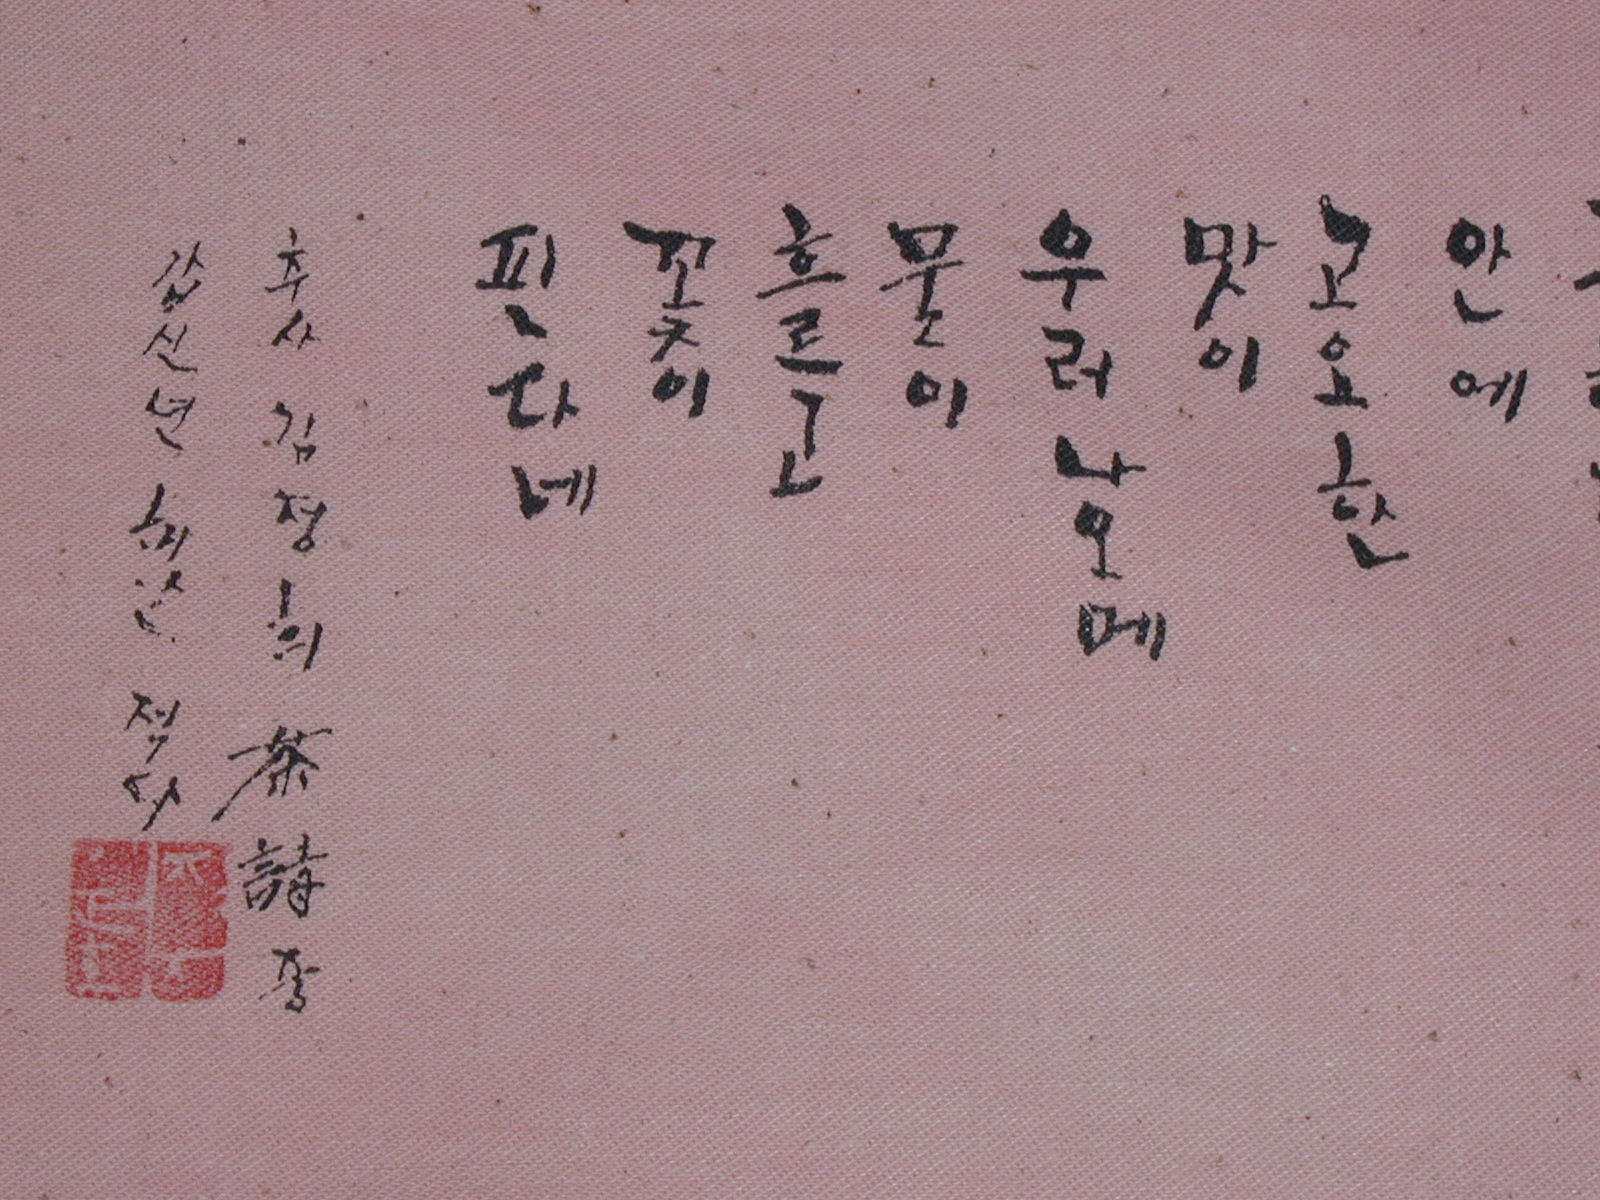 안에
고요한
맛이
우러나오메
물이
흐르고
꼬츠이
필다네
추사 김정희 茶詩
적다